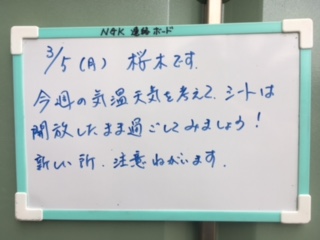 NGK 連絡ボード
3/5(月) 桜木です.
今週の気温天気を考えて、シートは
開放したまま過ごしてみましょう!
新しい所、注意ねがいます.